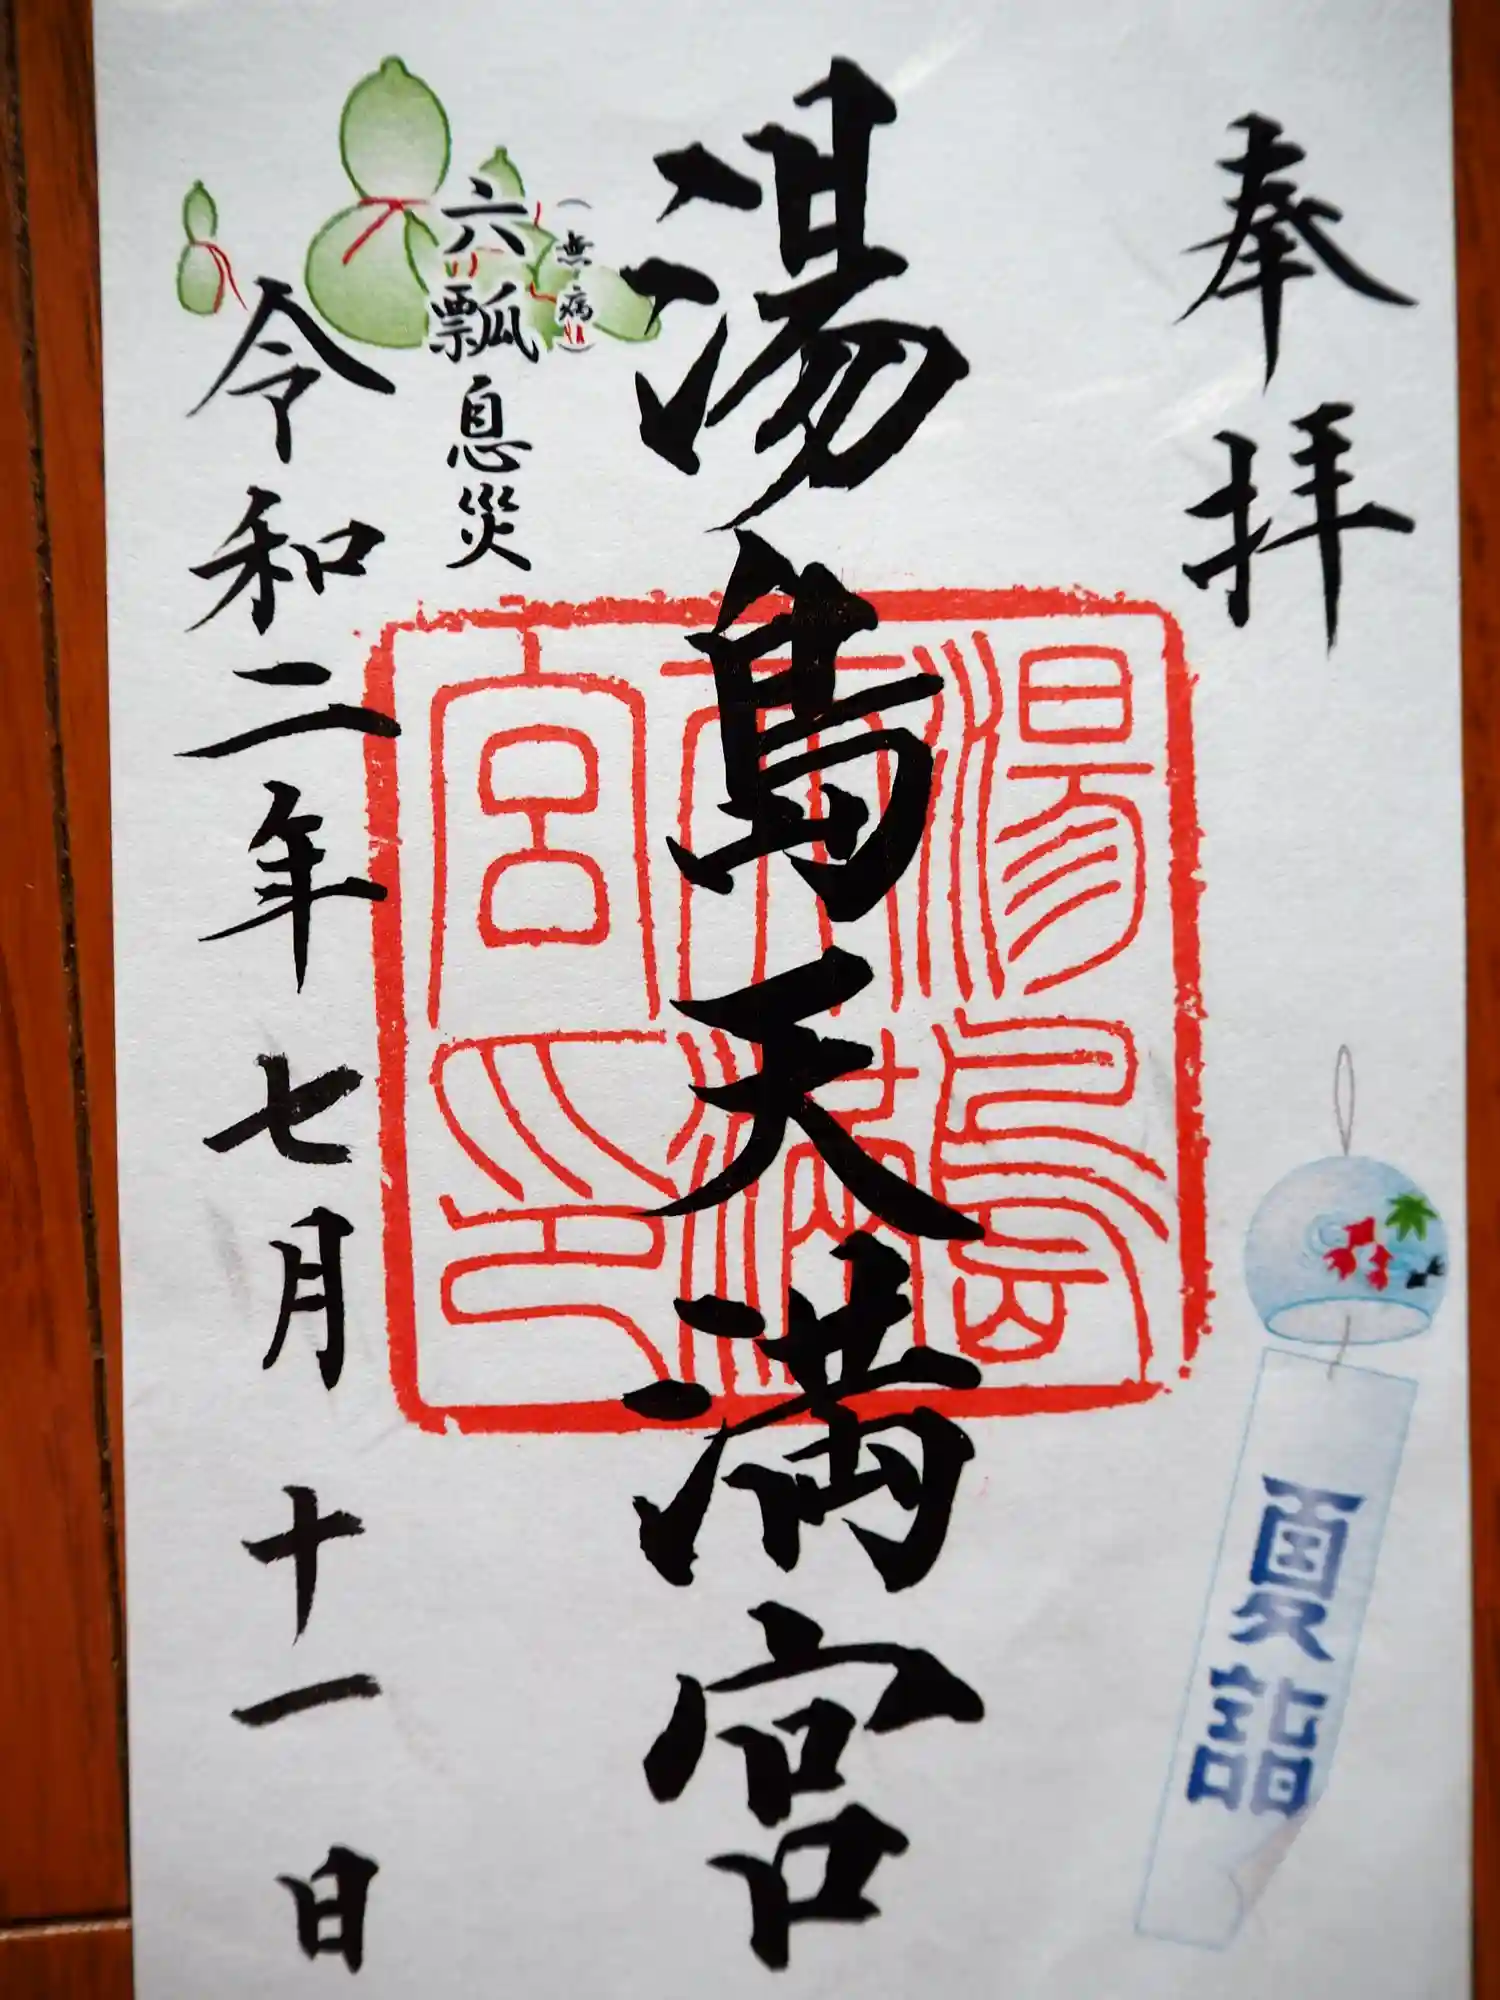 奉拝
夏詣
湯島天満宮
湯島
天満
宮印
(無病)
六瓢息災
令和二年七月十一日